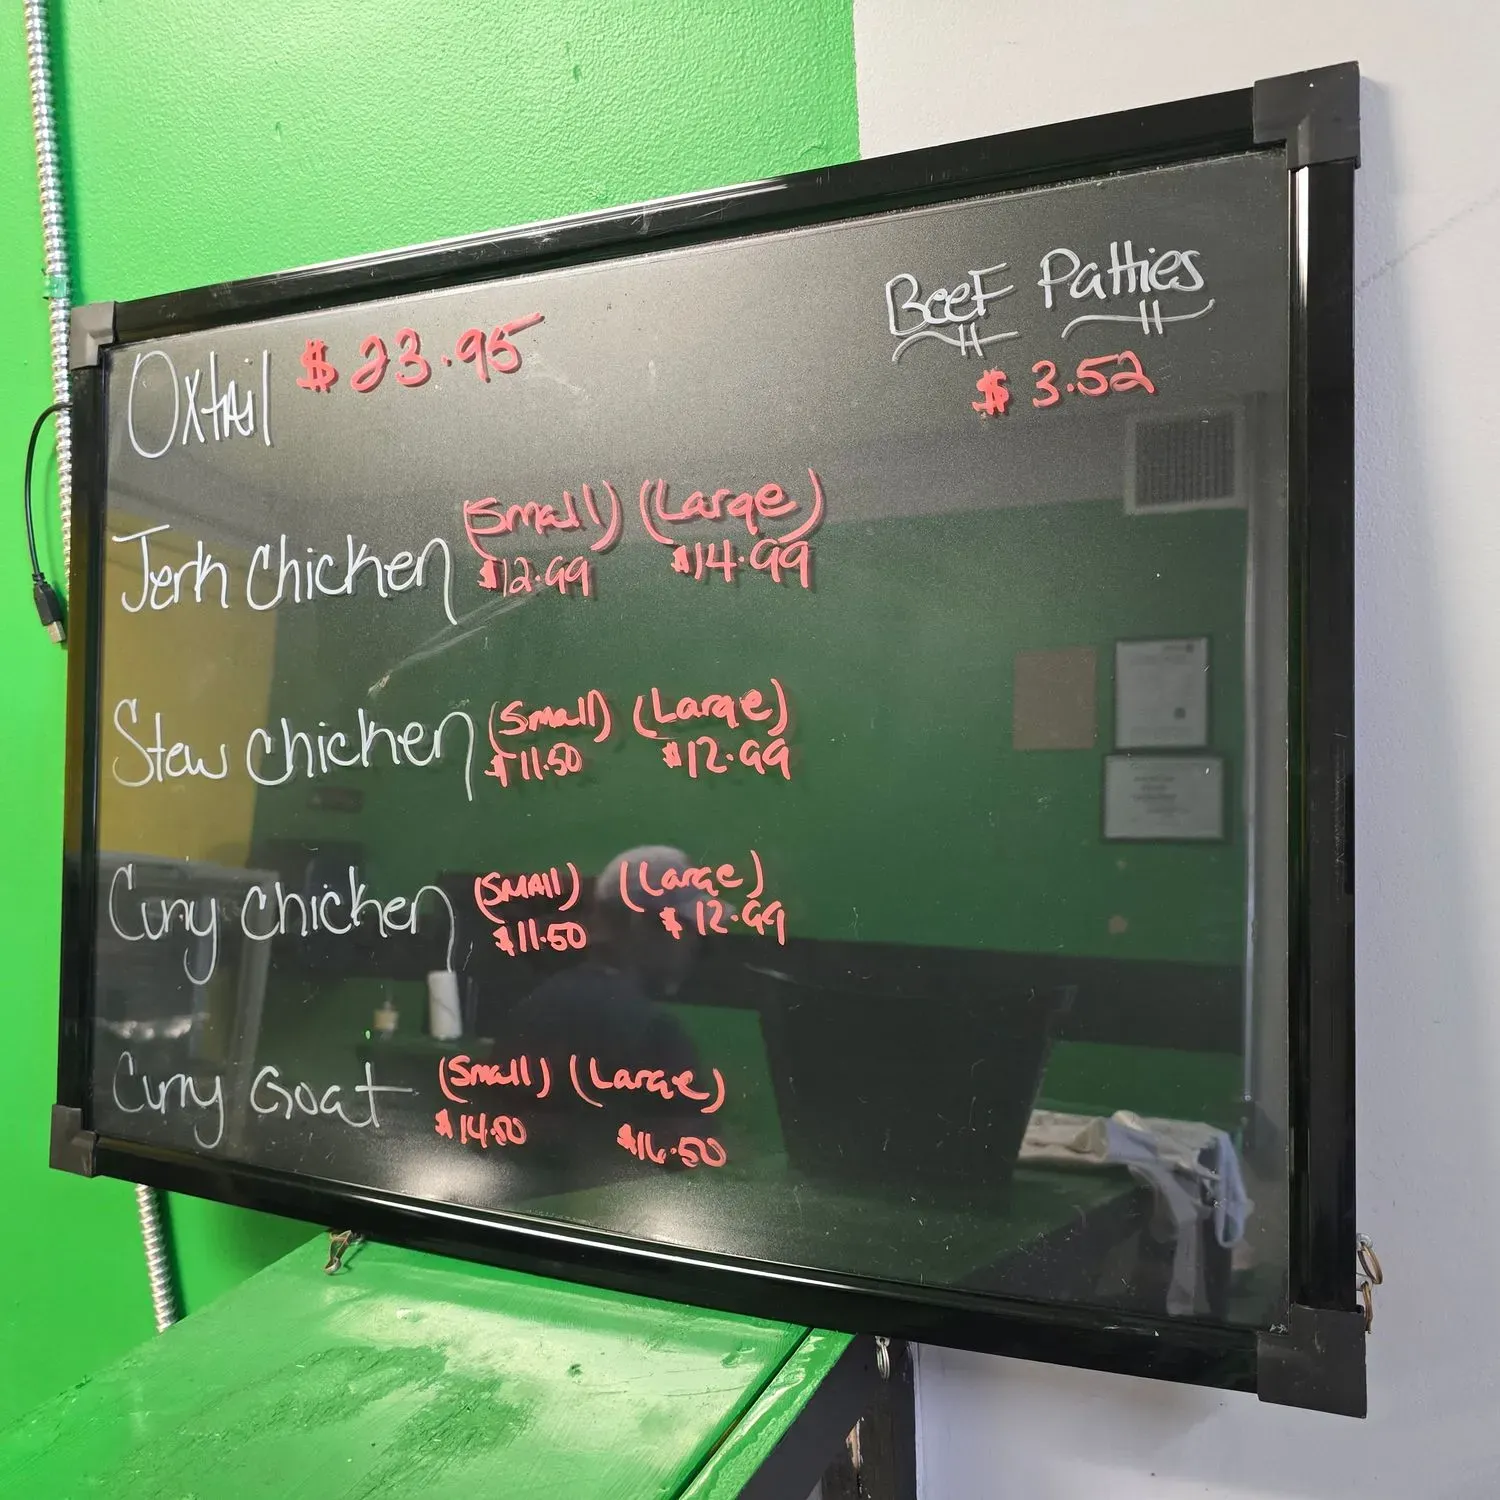 Beef Patties
$ 3.52
Oxtail $ 23.95
Jerk Chicken (Small) (Large)
$12.99 $14.99
Stew Chicken (Small) (Large)
$11.50 $12.99
Curry Chicken (Small) (Large)
$11.50 $12.99
Curry Goat (Small) (Large)
$14.50 $16.50